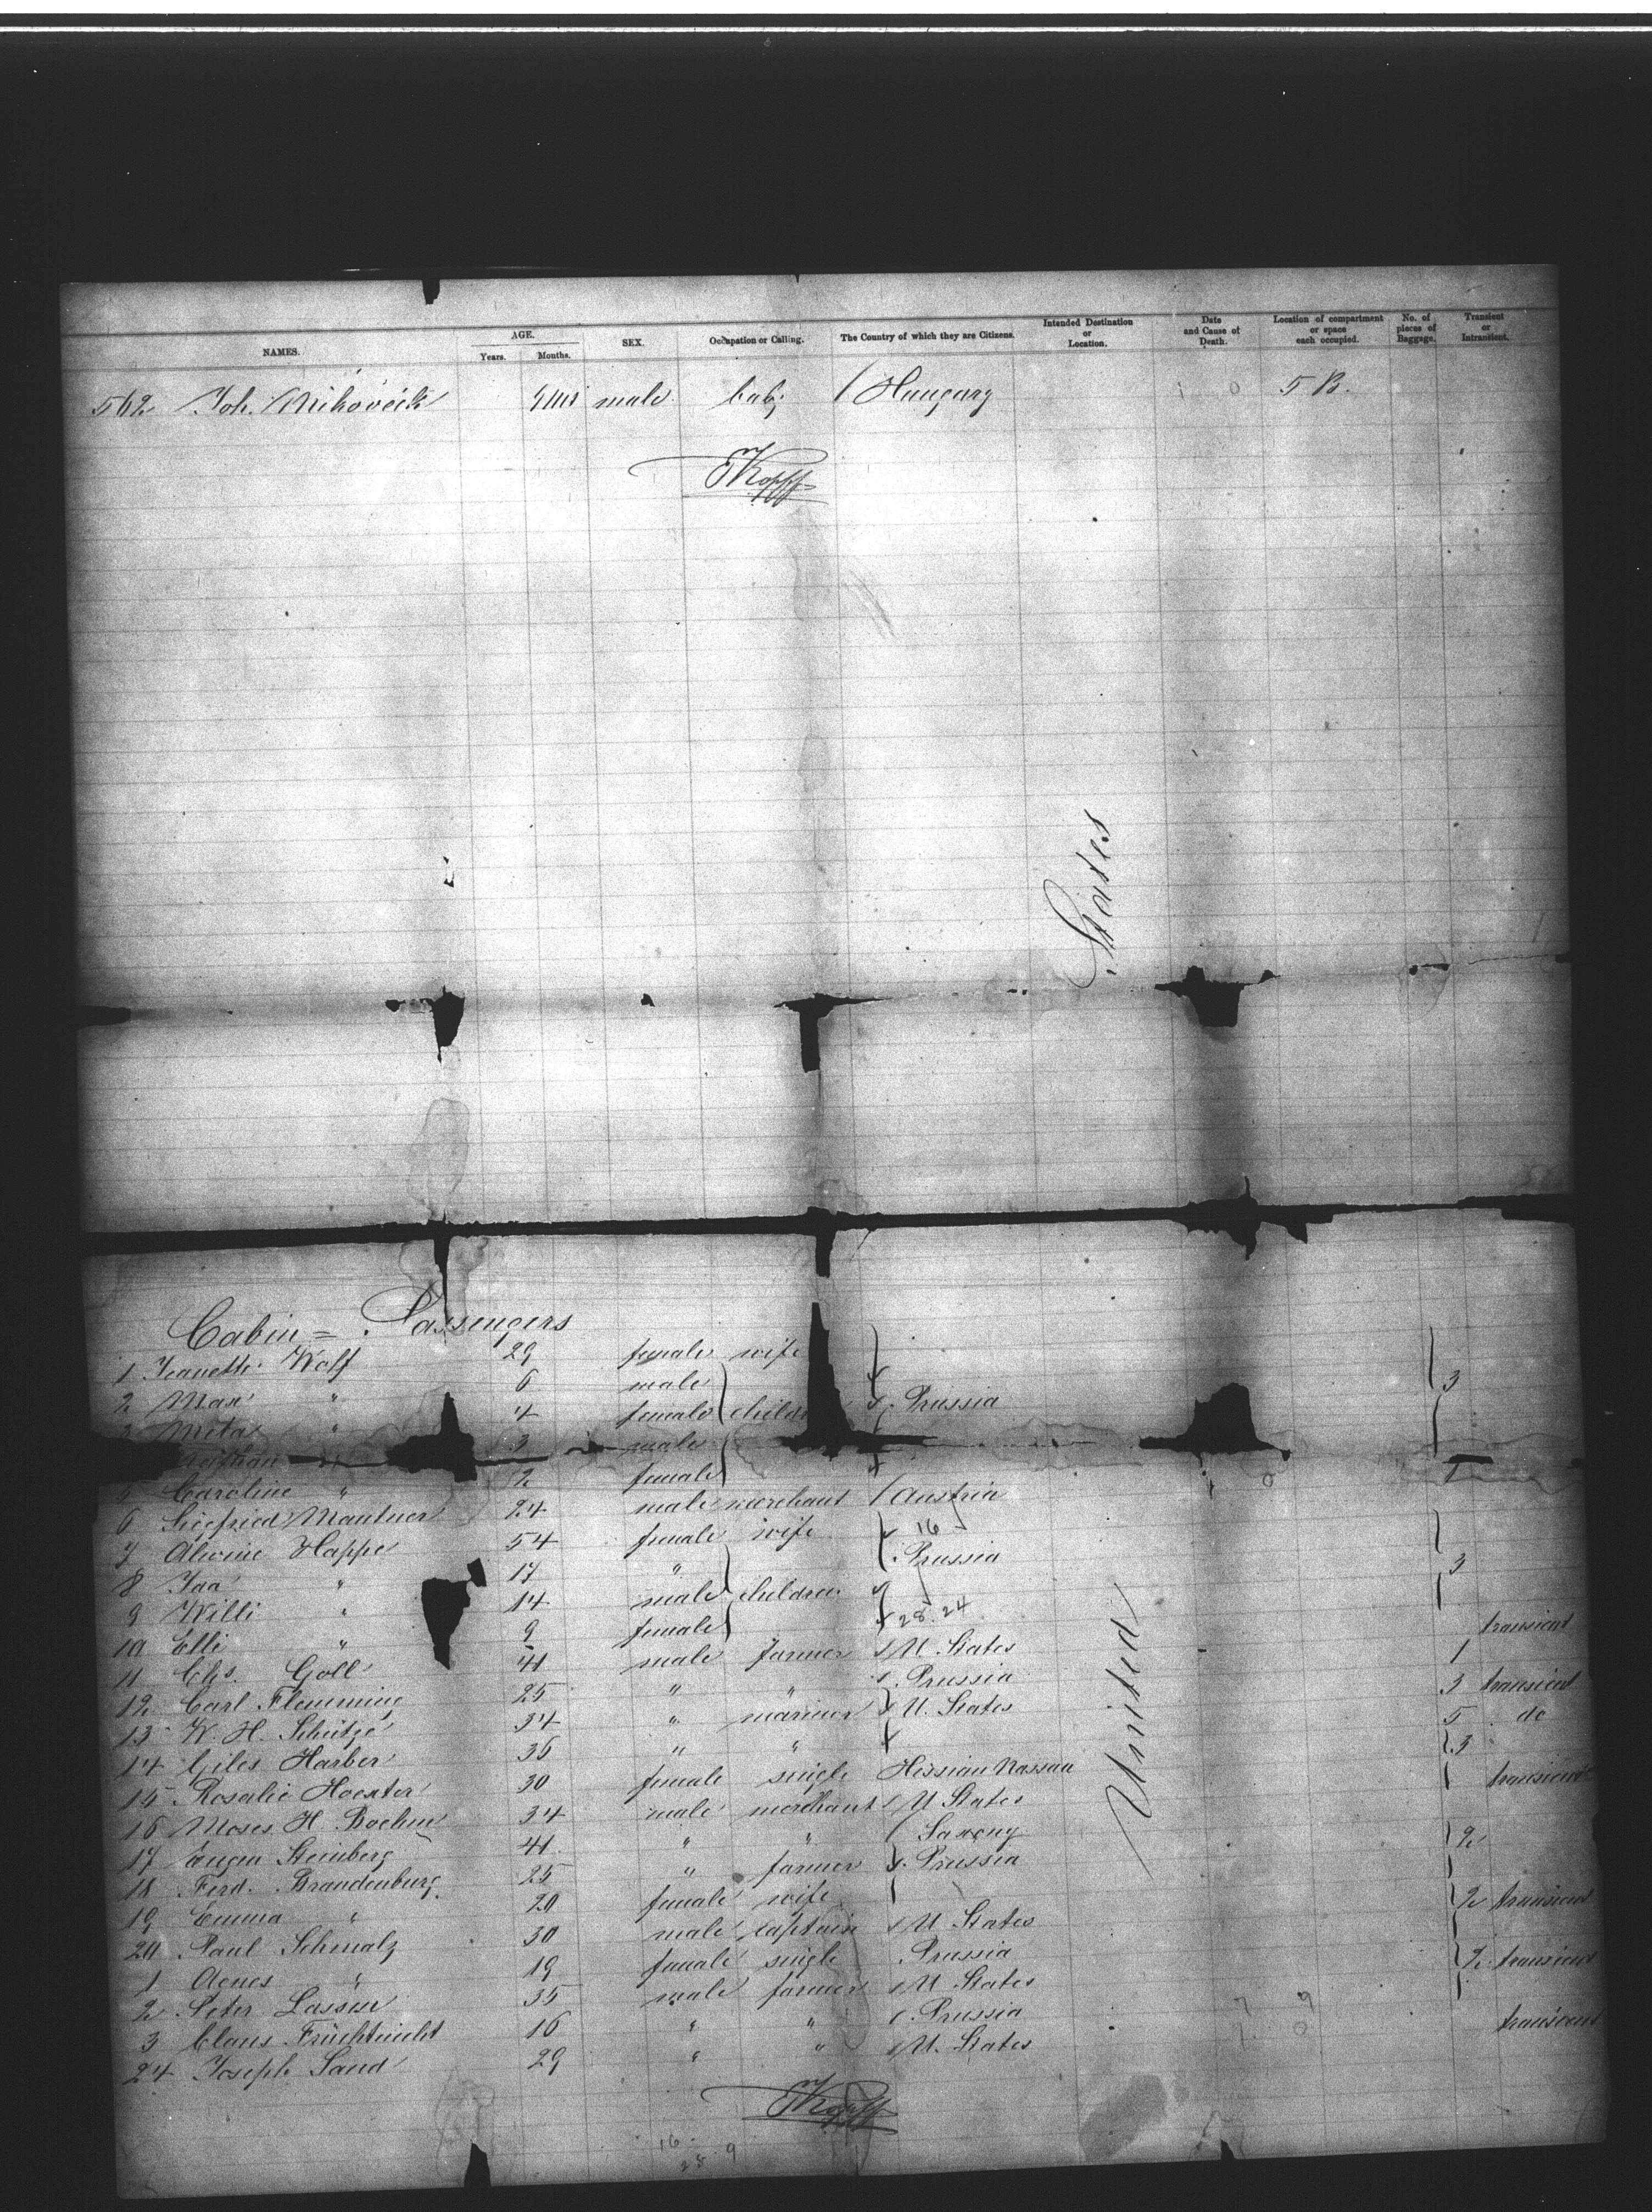 NAMES. AGE. Years. Months. SEX. Occupation or Calling. The Country of which they are Citizens. Intended Destination or Location. Date and Cause of Death. Location of compartment or space each occupied. No. of pieces of Baggage. Transient or Intransient.
562 Joh. Mikovecik male baby Hungary 5 B.
TKopff
States
Cabin = Passengers
1 Jeanette Wolf 29 female wife
2 Max " 6 male 3
3 Meta " 4 female childr Prussia
3 male
5 Caroline " 2 female
6 Siegfried Mautner 24 male merchant Austria
7 Alwine Happe 54 female wife 16
8 Ida " 17 " Prussia 3
9 Willi " 14 male children
10 Elli " 9 female 28.24
11 Chs. Goll 41 male farmer U. States 1 transient
12 Carl Flemming 25 " " Prussia 3
13 W. H. Schütze 34 " mariner U. States 5 transient
14 Giles Harber 36 " " 3 do
15 Rosalie Hoexter 30 female single Hessian Nassau
16 Moses H. Boehm 34 male merchant U. States transient
17 Eugen Steinberg 41 " " Saxony 2
18 Ferd. Brandenburg 25 " farmer Prussia
19 Emma " 20 female wife
20 Paul Schmalz 30 male captain U. States 2 transient
1 Agnes " 19 female single Prussia
2 Peter Lassen 35 male farmer U. States 2 transient
3 Claus Früchtnicht 16 " " Prussia
24 Joseph Sand 29 " " U. States transient
United
TKopff
16
28 9